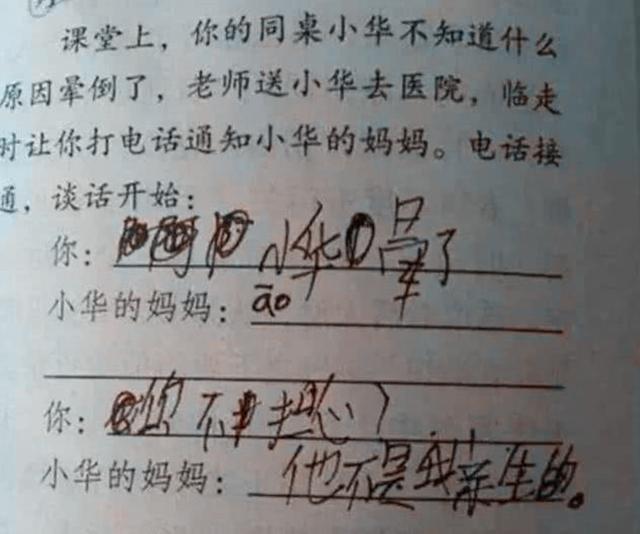 课堂上，你的同桌小华不知道什么
原因晕倒了，老师送小华去医院，临走
时让你打电话通知小华的妈妈。电话接
通，谈话开始：
你：小华晕了
小华的妈妈：āo
你：你不担心
小华的妈妈：他不是我亲生的。